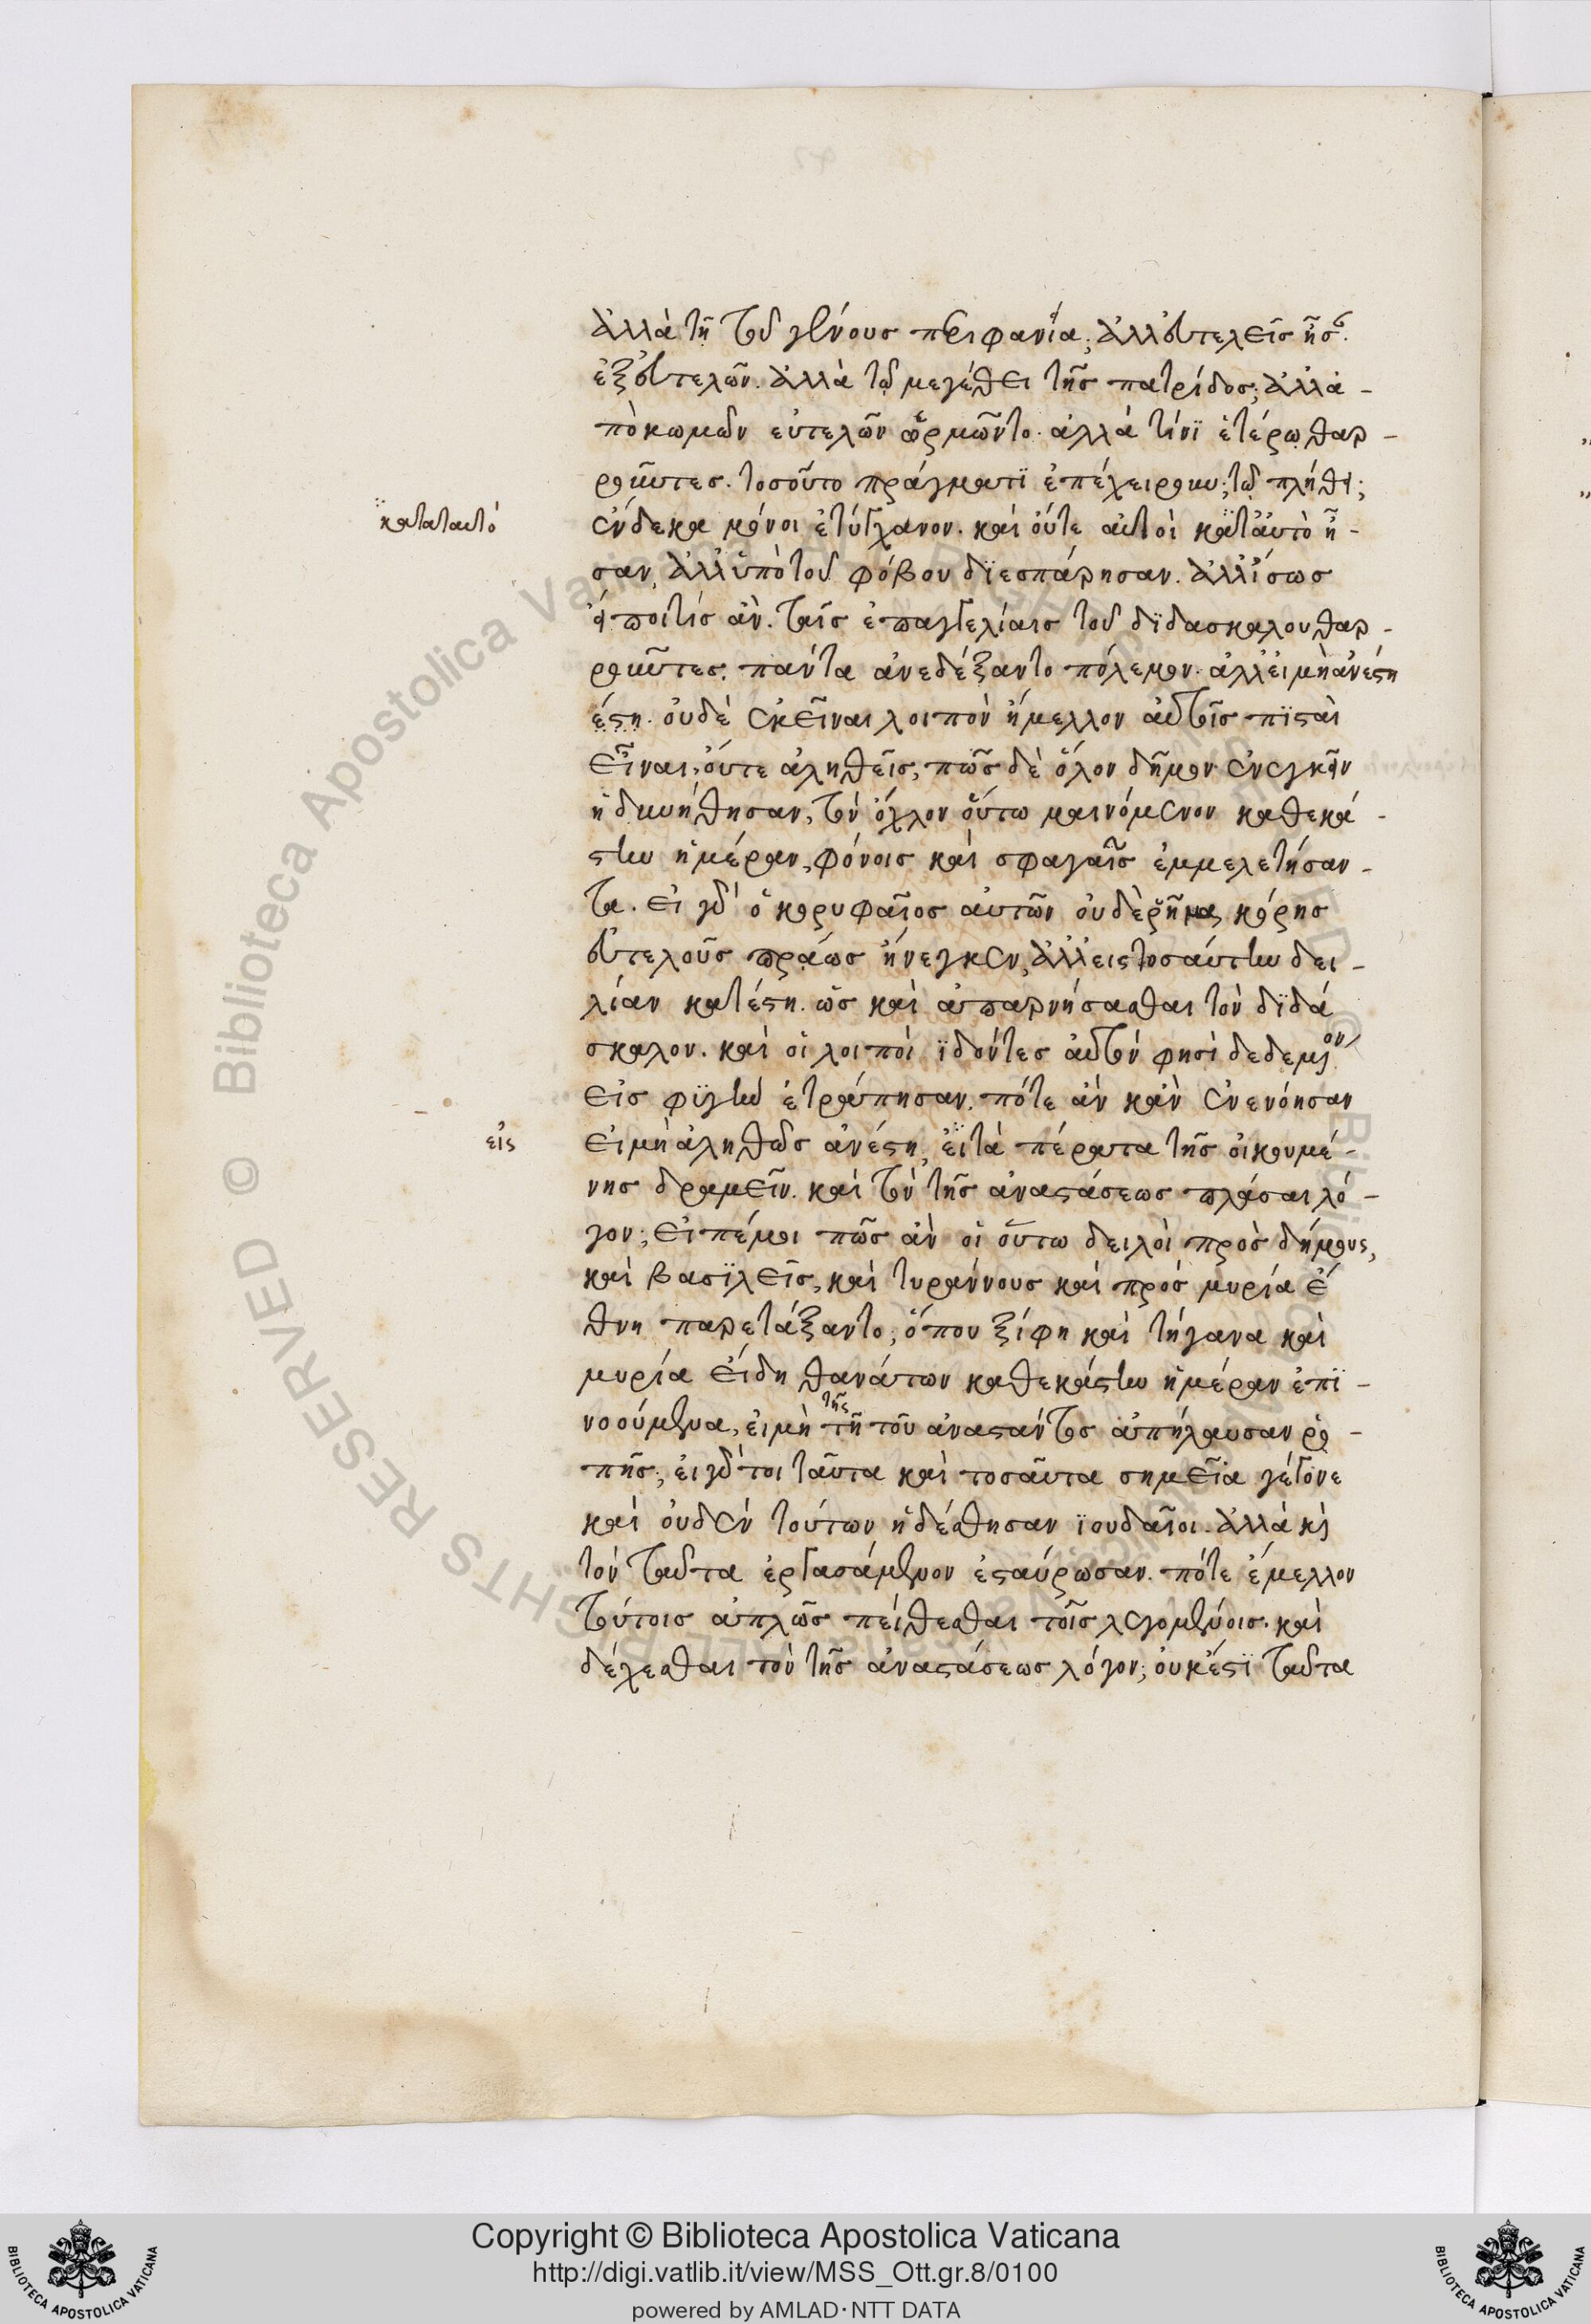 ἀλλὰ τῆ τοῦ γένους περιφανεία; ἀλλ' εὐτελεῖς ἦσαν
ἐξ εὐτελῶν. ἀλλὰ τῷ μεγέθει τῆς πατρίδος; ἀλλ' ἀ-
πὸ κωμῶν εὐτελῶν ὥρμῶντο. ἀλλά τίνϊ ἑτέρῳ θαρ-
ροῦντες. τοσοῦτο πράγματϊ ἐπέχειρουν; τῷ πλήθει;
ϊκατὰ ταυτό
ἕνδεκα μόνοι ἐτύγχανον. καὶ οὔτε αὐτοὶ κατ' αὐτὸ ἦ-
σαν, ἀλλ' ὑπὸ τοῦ φόβου δϊεσπάρησαν. ἀλλ' ἴσως
εἴποι τίς ἀν. ταῖς ἐπαγγελίαις τοῦ δϊδασκαλου θαρ-
ροῦντες. πάντα ἀνεδέξαντο πόλεμον. ἀλλ' εἰ μὴ ἀνέστη
έστη. οὐδὲ ἐκεῖναι λοιπὸν ἤμελλον αὐτοῖς πϊσταὶ
εἶναι, οὔτε ἀληθεῖς, πῶς δὲ ὅλον δῆμον ἐνεγκεῖν
ἠδυνήθησαν, τὸν ὄχλον οὕτω μαινόμενον καθεκά-
στην ἡμέραν, φόνοις καὶ σφαγαῖς ἐμμελετήσαν-
τα. εἰ γὰρ ὁ κορυφαῖος αὐτῶν οὐδὲ ῥῆμα κόρης
εὐτελοῦς πράως ἤνεγκεν, ἀλλ' εις τοσαύτην δει-
λίαν κατέστη. ὡς καὶ ἀπαρνήσασθαι τὸν δϊδά
σκαλον. καὶ οἱ λοιποὶ ϊδόντες αὐτόν φησὶ δεδεμένον
εἰς φϋγὴν ἐτράπησαν. πότε ἀν κἀν ἐνενόησαν
εἰς
εἰ μὴ ἀληθῶς ἀνέστη, ἐϊ τὰ πέρατα τῆς οἰκουμέ-
νης δραμεῖν. καὶ τὸν τῆς ἀναστάσεως πλάσαι λό-
γον; εἰπέ μοι πῶς ἀν οἱ οὕτω δειλοὶ πρὸς δήμους,
καὶ βασϊλεῖς, καὶ τυράννους καὶ πρός μυρία ἔ
θνη παρετάξαντο, ὅπου ξίφη καὶ τήγανα καὶ
μυρία εἴδη θανάτων καθεκάστην ἡμέραν ἐπϊ-
νοούμενα, εἰ μὴ τῆς τῆ τοῦ ἀναστάντος ἀπήλαυσαν ῥο-
πῆς; εἰ γάρ τοι ταῦτα καὶ τοσαῦτα σημεῖα γέγονε
καὶ οὐδὲν τούτων ἠδέσθησαν ϊουδαῖοι. ἀλλὰ καὶ
τὸν ταῦτα ἐργασάμενον ἐσταύρωσαν. πότε ἔμελλον
τούτοις ἁπλῶς πείθεσθαι τοῖς λεγομένοις. καὶ
δέχεσθαι τὸν τῆς ἀναστάσεως λόγον; οὐκ ἔστϊ ταῦτα
Copyright © Biblioteca Apostolica Vaticana
http://digi.vatlib.it/view/MSS_Ott.gr.8/0100
powered by AMLAD·NTT DATA